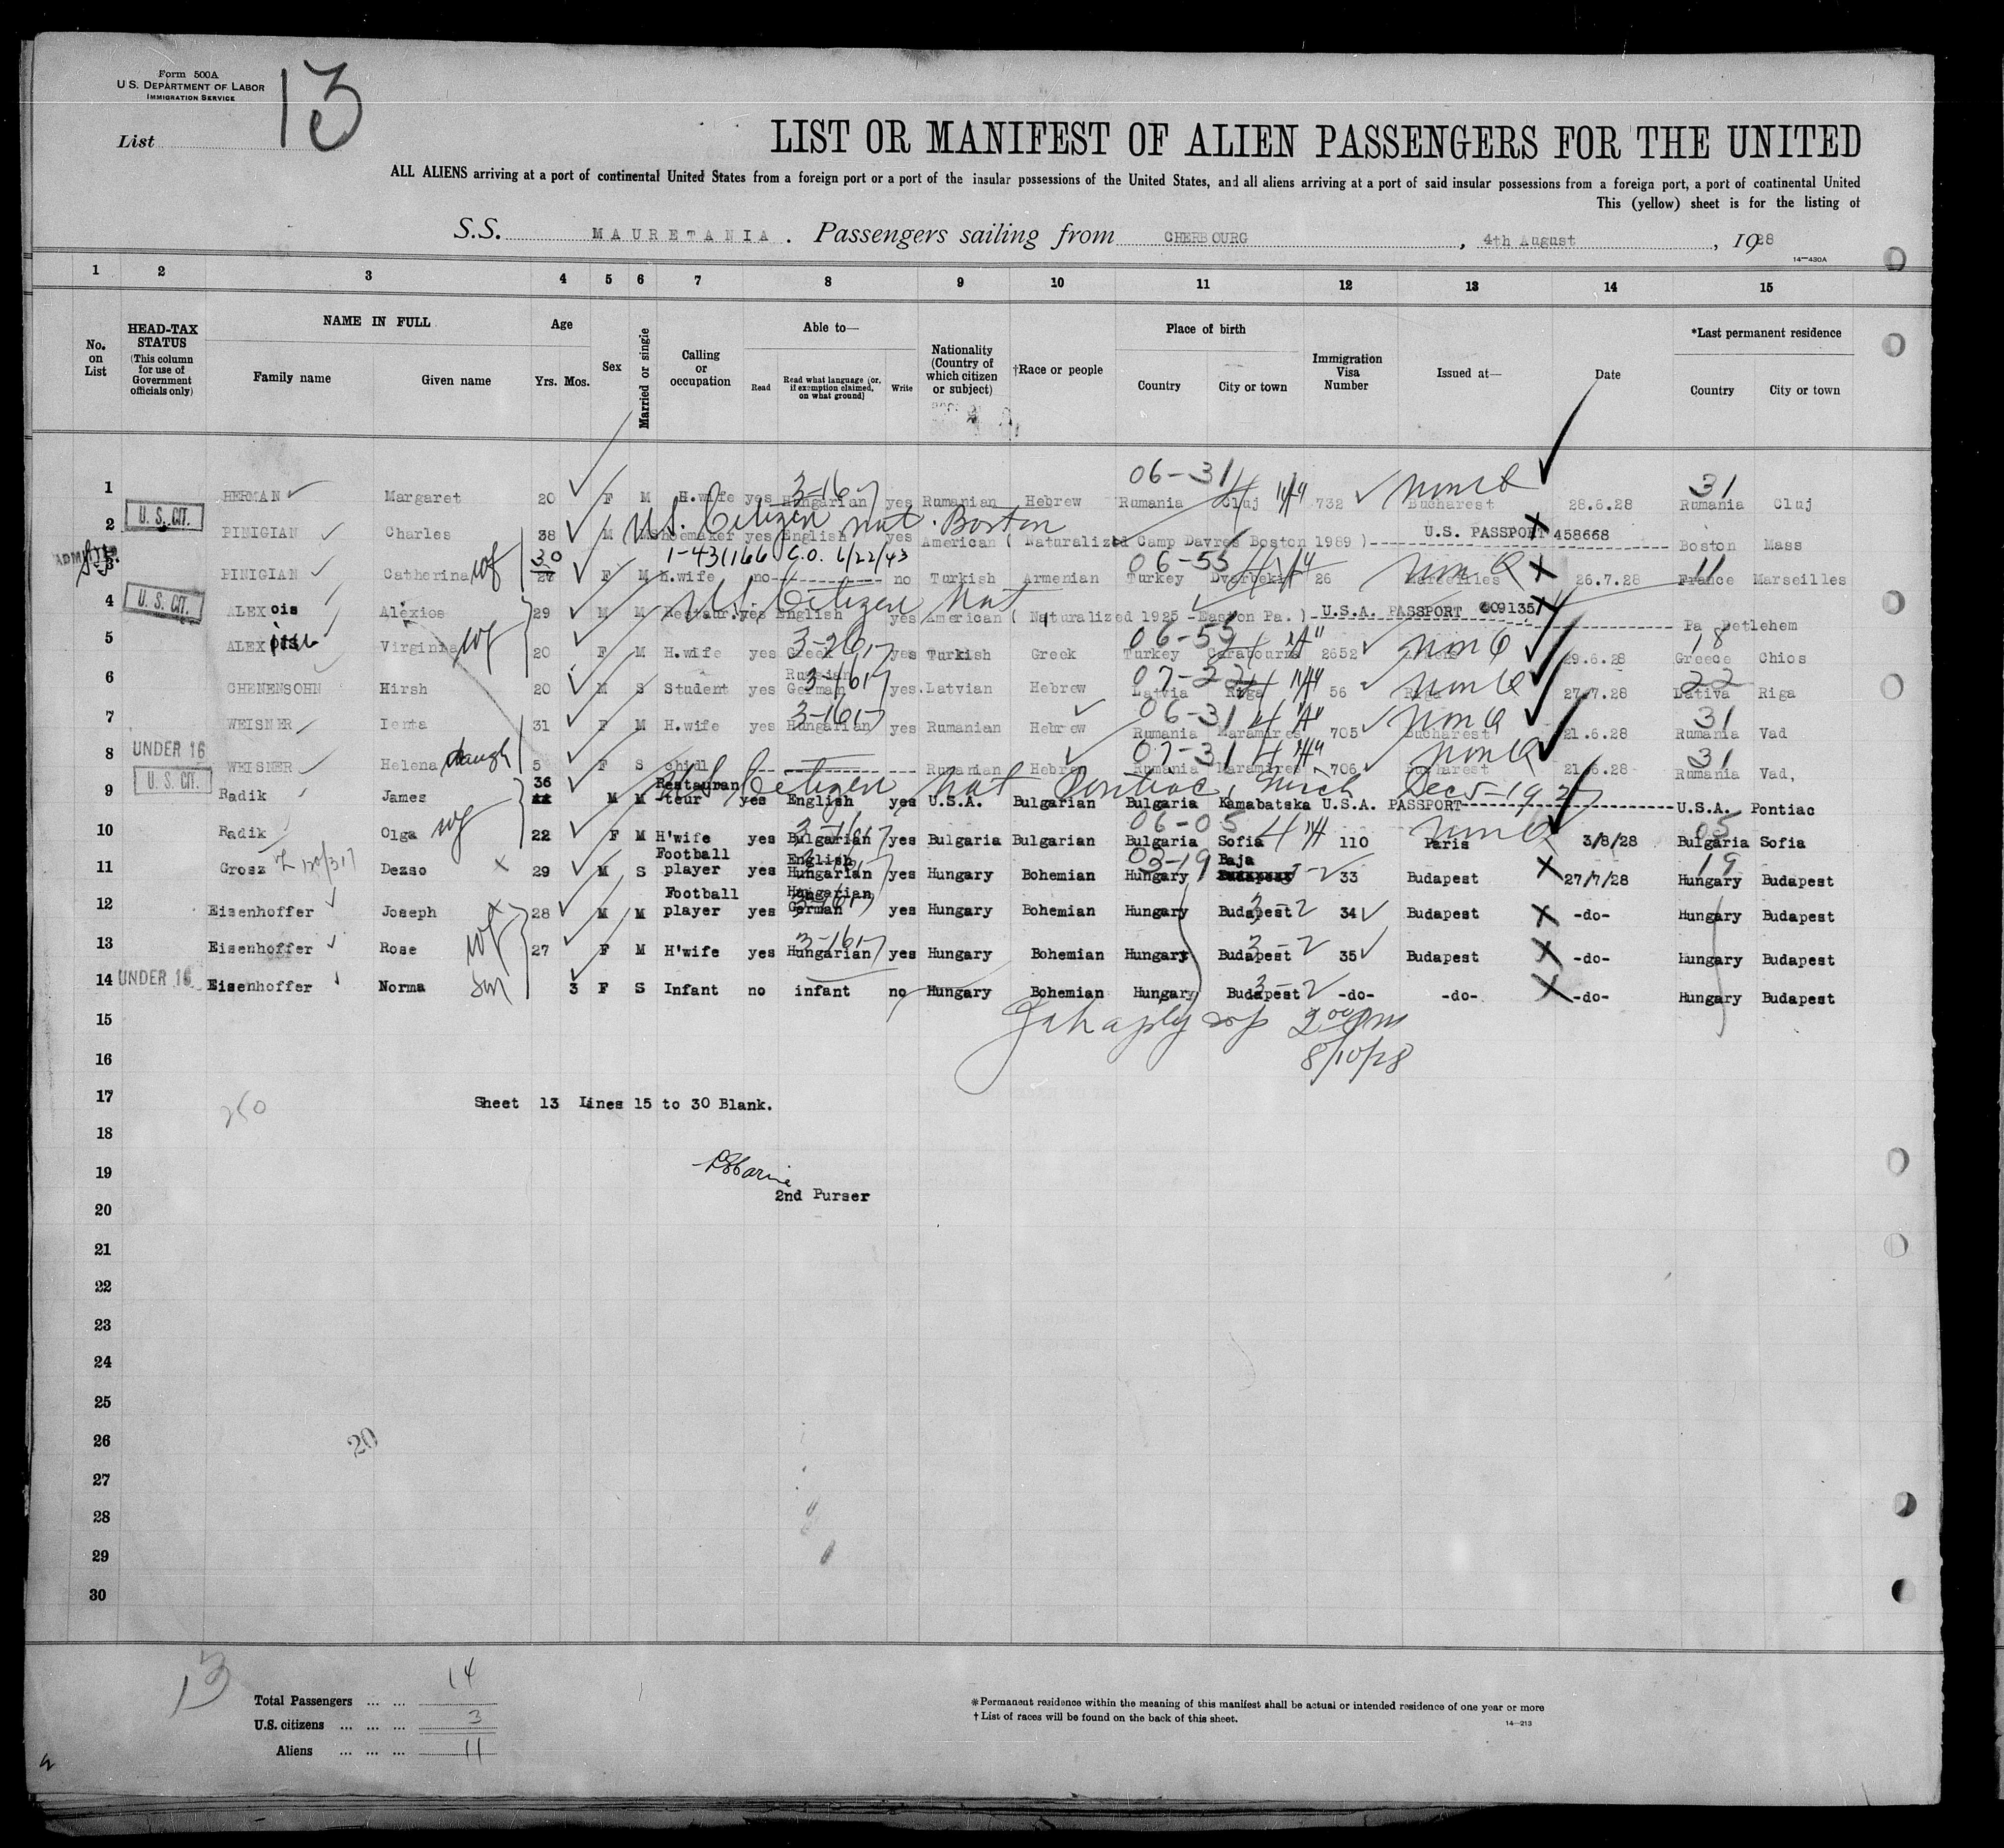 Form 500A
U.S. DEPARTMENT OF LABOR
IMMIGRATION SERVICE
List 13
LIST OR MANIFEST OF ALIEN PASSENGERS FOR THE UNITED
ALL ALIENS arriving at a port of continental United States from a foreign port or a port of the insular possessions of the United States, and all aliens arriving at a port of said insular possessions from a foreign port, a port of continental United
This (yellow) sheet is for the listing of
S.S. MAURETANIA. Passengers sailing from CHERBOURG, 4th August, 1928
14-430A
1 2 3 4 5 6 7 8 9 10 11 12 13 14 15
No. on List
HEAD-TAX STATUS (This column for use of Government officials only)
NAME IN FULL
Family name Given name
Age
Yrs. Mos.
Sex
Married or single
Calling or occupation
Able to—
Read Read what language (or, if exemption claimed, on what ground) Write
Nationality (Country of which citizen or subject)
†Race or people
Place of birth
Country City or town
Immigration Visa Number
Issued at—
Date
*Last permanent residence
Country City or town
06-31 31
1 HERMAN Margaret 20 F M H.wife yes Hungarian 3-16 yes Rumanian Hebrew Rumania Cluj 732 Bucharest 28.6.28 Rumania Cluj
U.S. Citizen nat. Boston
2 U. S. CIT. PINIGIAN Charles 38 M M Shoemaker yes English yes American ( Naturalized Camp Davres Boston 1989 ) U.S. PASSPORT 458668 Boston Mass
30 1-431166 C.O. 6/22/43 06-53 11
3 ADMITTED PINIGIAN Catherina wf 27 F M H.wife no no Turkish Armenian Turkey 26 Marseilles 26.7.28 France Marseilles
U.S. Citizen Nat
4 U. S. CIT. ALEXois Alexios 29 M M Restaur. yes English yes American ( Naturalized 1925 -Easton Pa. ) U.S.A. PASSPORT 609135 Pa Betlehem
06-53 18
5 ALEX Virginia wf 20 F M H.wife yes Greek yes Turkish Greek Turkey Carabourna 2652 29.6.28 Greece Chios
Russian 07-22 22
6 CHENENSOHN Hirsh 20 M S Student yes German yes. Latvian Hebrew Latvia Riga 56 27.7.28 Lativa Riga
3-1617 06-31 31
7 WEISNER Ienta 31 F M H.wife yes Hungarian yes Rumanian Hebrew Rumania Maramires 705 Bucharest 21.6.28 Rumania Vad
07-31 31
8 UNDER 16 WEISNER Helena daugh 5 F S chidl Rumanian Hebrew Rumania Maramires 706 Bucharest 21.6.28 Rumania Vad,
U.S. Citizen Nat Pontiac, Mich Dec 5-1927
9 U. S. CIT. Radik James 36 M M Restauran-teur yes English yes U.S.A. Bulgarian Bulgaria Kamabatska U.S.A. PASSPORT U.S.A. Pontiac
06-05 05
10 Radik Olga wf 22 F M H'wife yes Bulgarian yes Bulgaria Bulgarian Bulgaria Sofia 110 Paris 3/8/28 Bulgaria Sofia
11 Grosz Dezso 29 M S Football player yes English Hungarian yes Hungary Bohemian Hungary Baja 33 Budapest 27/7/28 Hungary Budapest
12 Eisenhoffer Joseph 28 M M Football player yes Hungarian German yes Hungary Bohemian Hungary Budapest 34 Budapest -do- Hungary Budapest
13 Eisenhoffer Rose wf 27 F M H'wife yes Hungarian yes Hungary Bohemian Hungary Budapest 35 Budapest -do- Hungary Budapest
14 UNDER 16 Eisenhoffer Norma 3 F S Infant no infant no Hungary Bohemian Hungary Budapest -do- -do- -do- Hungary Budapest
15
2 00 pm
16
8/10/28
17 250 Sheet 13 Lines 15 to 30 Blank.
18
19
2nd Purser
20
21
22
23
24
25
26 20
27
28
29
30
13
Total Passengers ... ... 14
U.S. citizens ... ... ... 3
Aliens ... ... ... 11
*Permanent residence within the meaning of this manifest shall be actual or intended residence of one year or more
†List of races will be found on the back of this sheet.
14-213